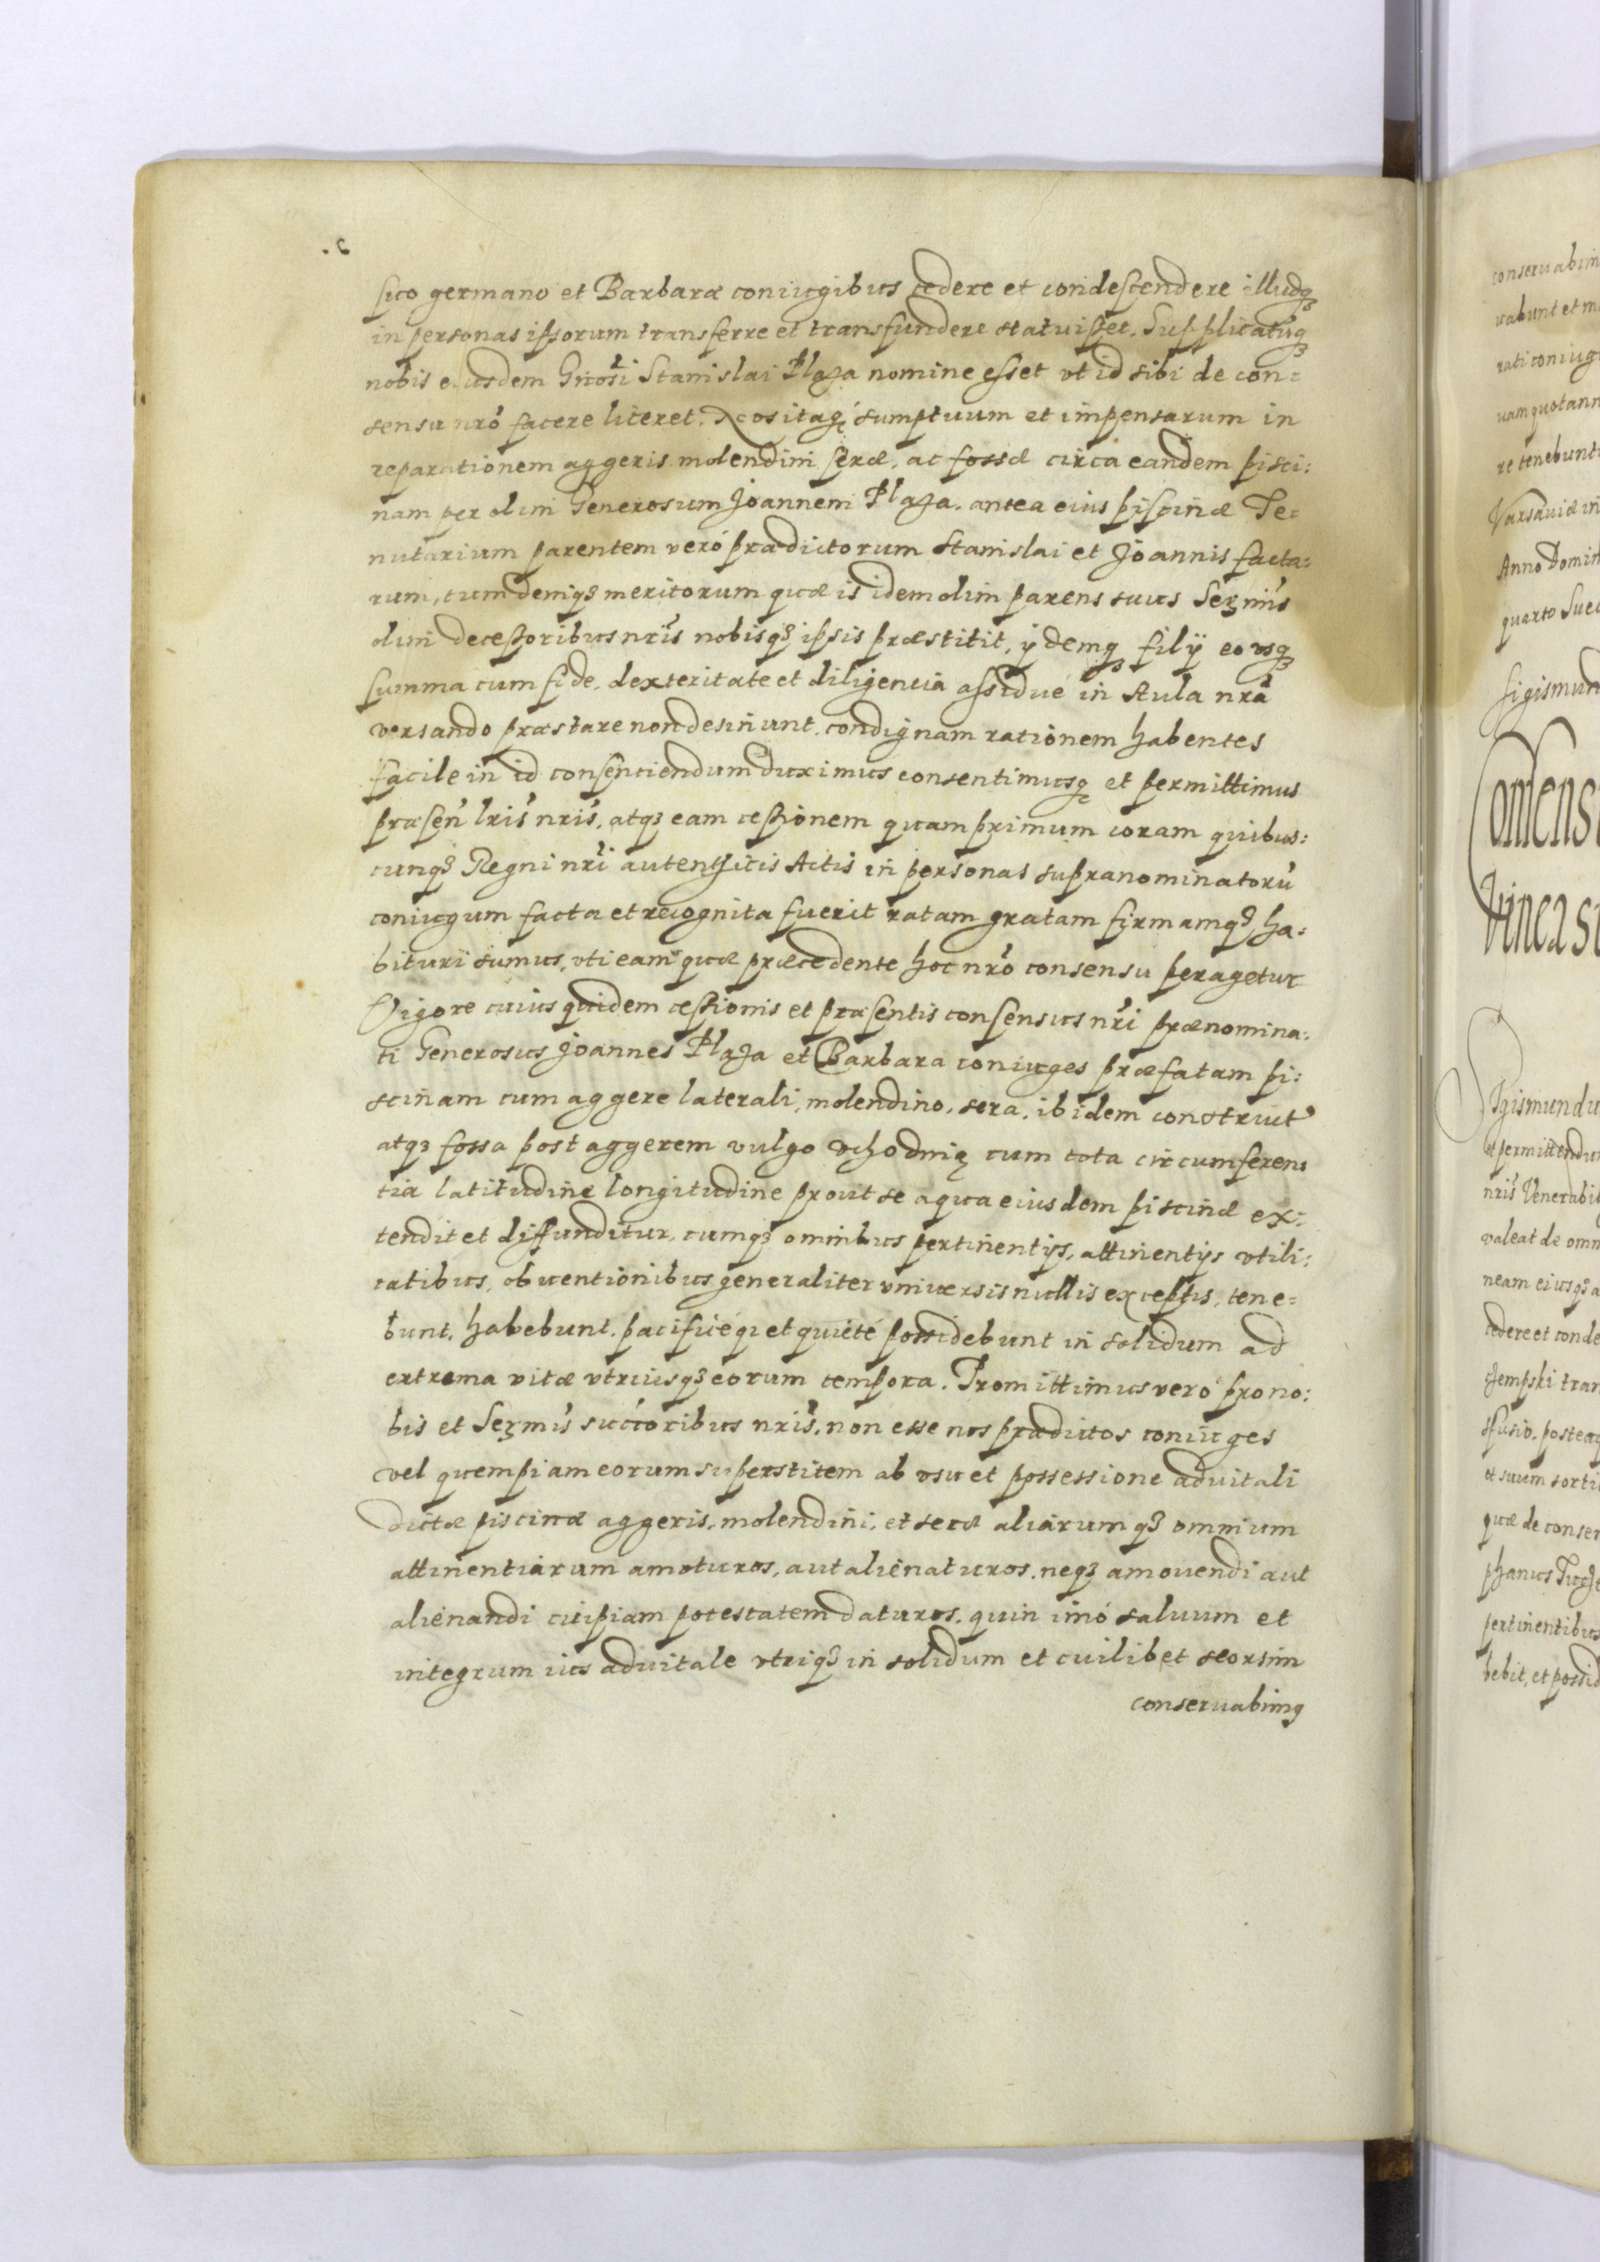 suo germano et Barbaræ coniugibus cedere et condescendere illudqȝ
in personas ipsorum transferre et transfundere statuisset. Supplicatūqȝ
nobis eiusdem Gñosi Stanislai Plaza nomine esset vt id sibi de con:
sensu nrõ facere liceret. Nos itaqȝ sumptuum et impensarum in
reparationem aggeris molendini seræ, ac fossæ circa eandem pisci:
nam per olim Generosum Joannem Plaza, antea eius piscinæ Te:
nutarium parentem veró prædictorum Stanislai et Joannis facta:
rum, tum deniqȝ meritorum quæ is idem olim parens suus Serm̃is
olim decessoribus nrĩs nobisqȝ ipsis præstitit, ijdemqȝ filij eo vsqȝ
summa cum fide, dexteritate et diligentia assidué in Aula nrã
versando præstare non desinunt, condignam rationem habentes
facile in id consentiendum duximus consentimusqȝ et permittimus
præseñ lrĩs nrĩs, atqȝ eam cessionem quamprimum coram quibus:
cunqȝ Regni nrĩ autenthicis Actis in personas supranominatorũ
coniugum facta et recognita fuerit ratam gratam firmamqȝ ha:
bituri sumus, vti eam quæ præcedente hoc nrõ consensu peragetur
Vigore cuius quidem cessionis et præsentis consensus nrĩ prænomina:
ti Generosus Joannes Plaza et Barbara coniuges præfatam pi:
scinam cum aggere laterali, molendino, sera, ibidem construct̃
atqȝ fossa post aggerem vulgo vchodnię cum tota circumferen:
tia latitudine longitudine prout se aqua eiusdem piscinæ ex:
tendit et diffunditur, cumqȝ omnibus pertinentijs, attinentijs vtili:
tatibus, obuentionibus generaliter vniuersis nullis exceptis, tene:
bunt, habebunt, pacificéqȝ et quieté possidebunt in solidum ad
extrema vitæ vtriusqȝ eorum tempora. Promittimus veró pro no:
bis et Serm̃is succ̃oribus nrĩs, non esse nos prædictos coniuges
vel quempiam eorum superstitem ab vsu et possessione aduitali
dictæ piscinæ aggeris, molendini, et seræ aliarumqȝ omnium
attinentiarum amoturos, aut alienaturos, neqȝ amouendi aut
alienandi cuipiam potestatem daturos, quin imó saluum et
integrum ius aduitale vtriqȝ in solidum et cuilibet seorsim
conseruabimꝯ
conseruabim
uabunt et m
rati coniug
uam quotann
re tenebunt
Varsauiæ in
Anno Domin
quarto Suec
Sigismun
Consens
vineas
Sigismundu
et permittendu
nrĩs Venerabi
valeat de omn
neam eiusqȝ a
cedere et conde
Zempski tran
sfusio, postea
et suum sorti
quæ de consen
phanus
pertinentibus
bebit, et possid